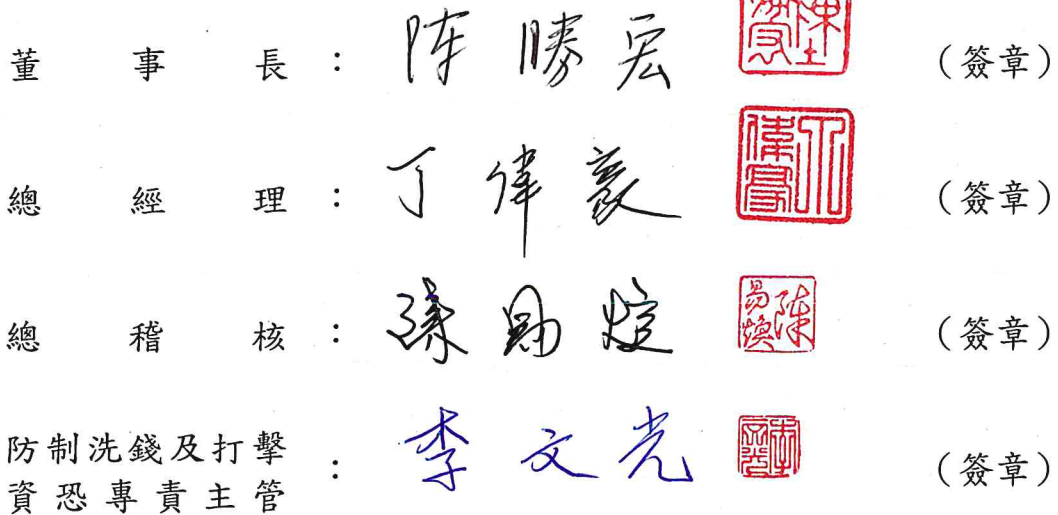 董事長：陣勝宏（簽章）
總經理：丁偉豪（簽章）
總稽核：（簽章）
防制洗錢及打擊
資恐專責主管：李文光（簽章）